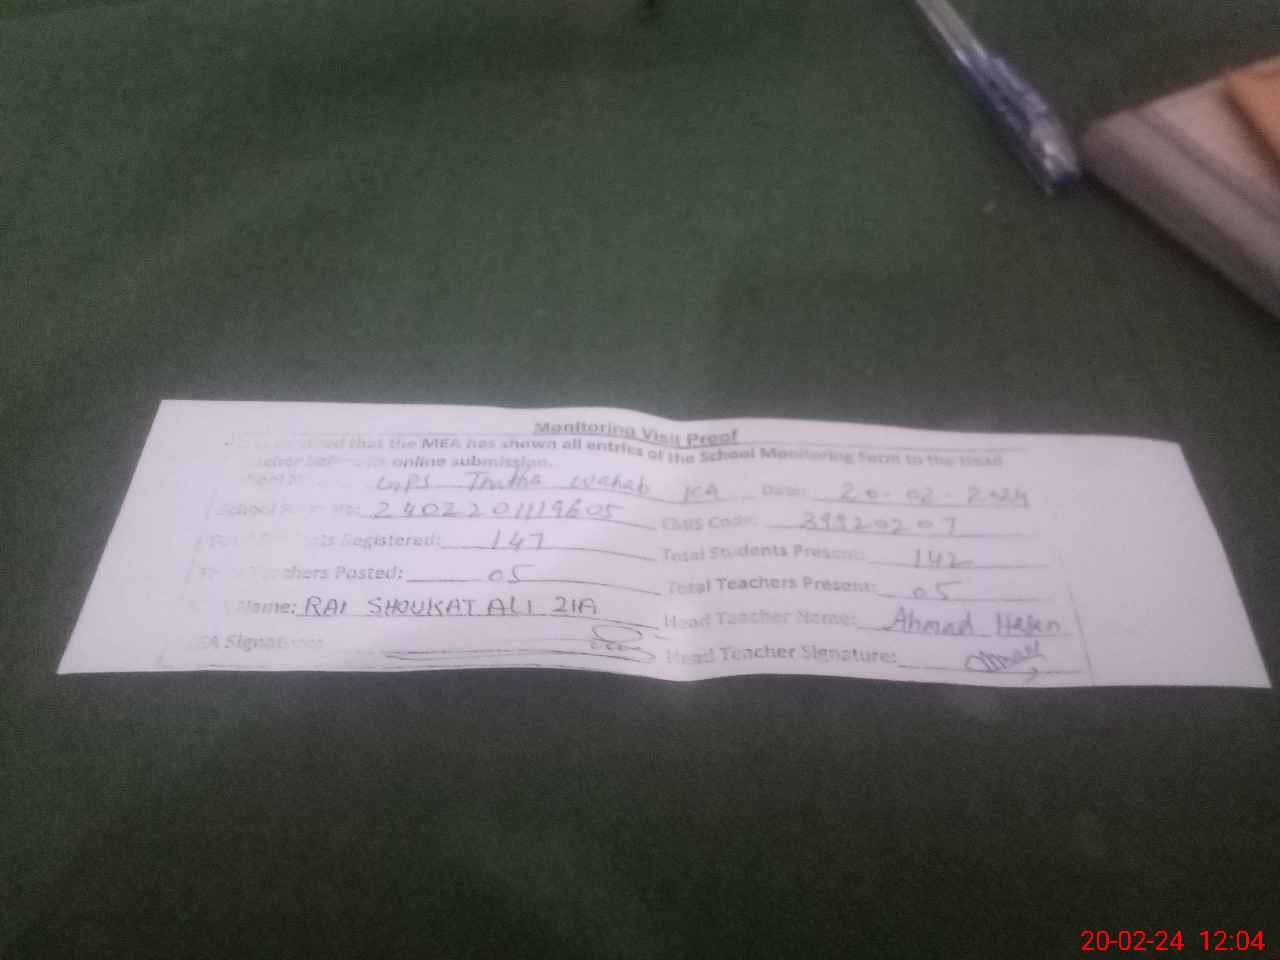 Monitoring Visit Proof
that the MEA has shown all entries of the School Monitoring Form to the Head
online submission.
GPS Thatha Wahab KA Date: 20-02-2024
School 2402201119605 EMIS Code: 39920207
Registered: 147 Total Students Present: 142
Teachers Posted: 05 Total Teachers Present: 05
Name: RAI SHOUKAT ALI ZIA Head Teacher Name: Ahmad Hasan
MEA Signature: Head Teacher Signature:
20-02-24 12:04